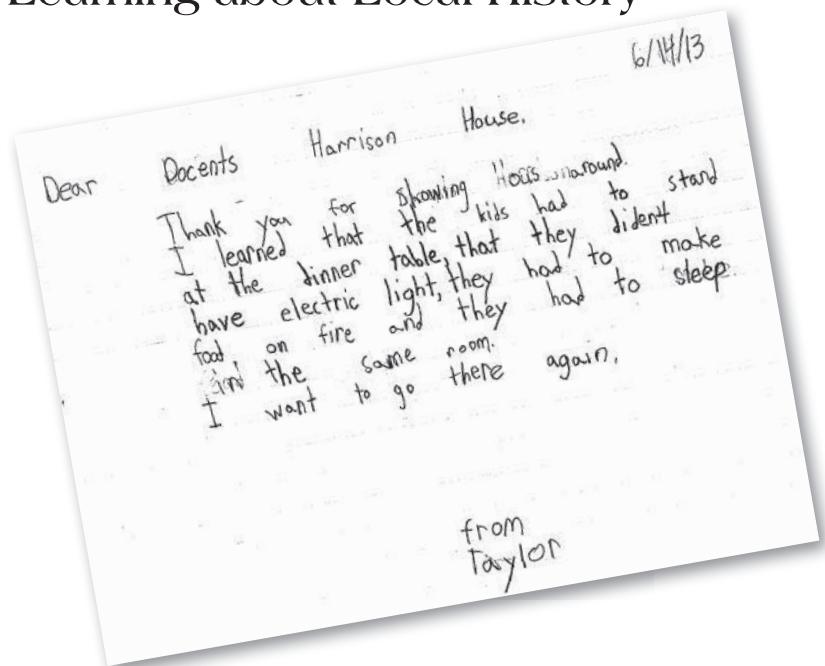 Learning about Local History
6/14/13
Dear Docents Harrison House.
Thank you for showing around.
I learned that the kids had to stand
at the dinner table, that they dident
have electric light, they had to make
food on fire and they had to sleep
in the same room.
I want to go there again.
from
Taylor